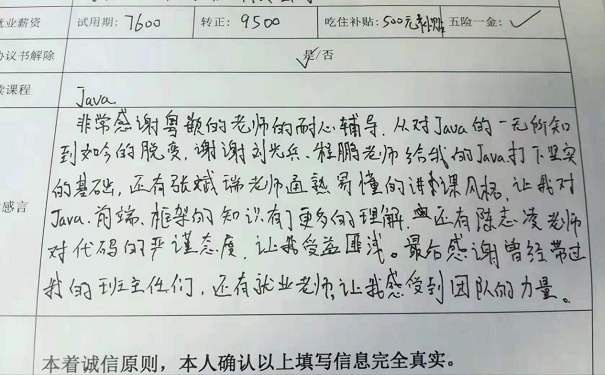 就业薪资 试用期:7600 转正:9500 吃住补贴:500元补贴 五险一金:✓
协议书解除 是/否
课程 Java
非常感谢粤嵌的老师的耐心辅导,从对Java的一无所知
到如今的脱变,谢谢刘光兵、程鹏老师给我的Java打下坚实
的基础,还有张斌瑞老师通熟易懂的讲课风格,让我对
感言 Java、前端、框架的知识有了更多的理解,还有陈志凌老师
对代码的严谨态度,让我受益匪浅。最后感谢曾经带过
我的班主任们,还有就业老师,让我感受到团队的力量。
本着诚信原则,本人确认以上填写信息完全真实。